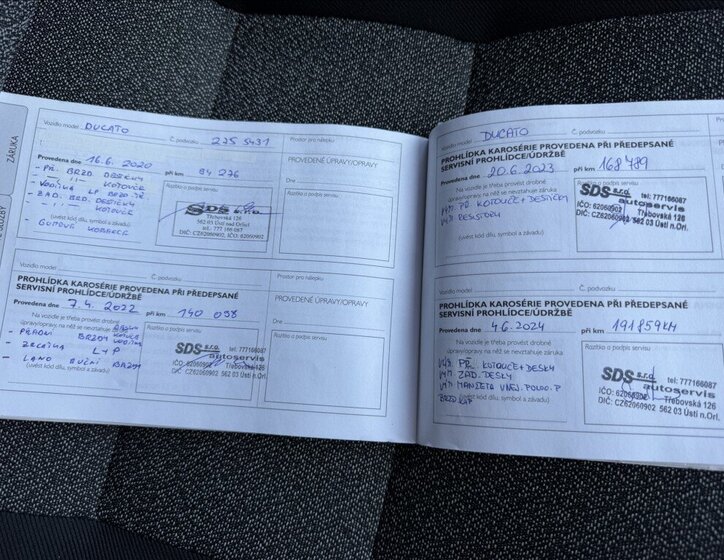 ZÁRUKA
Vozidlo model DUCATO
Č. podvozku 275 5431
Prostor pro nálepku
Provedena dne 16.6. 2020 při km 84 276
PROVEDENÉ ÚPRAVY/OPRAVY
- PŘ. BRZD. DESTIČKY
- — 11 — KOTOUČE
- ZAD. BRD. DESTIČKY
- — 11 — KOTOUČE
(uvést kód dílu, symbol a závadu)
Razítko a podpis servisu
SDS s.r.o.
Třebovská 126
562 03 Ústí nad Orlicí
tel: 777 166 087
DIČ: CZ62060902, IČO: 62060902
Dne
Vozidlo model
Č. podvozku
Prostor pro nálepku
PROHLÍDKA KAROSÉRIE PROVEDENA PŘI PŘEDEPSANÉ
SERVISNÍ PROHLÍDCE/ÚDRŽBĚ
PROVEDENÉ ÚPRAVY/OPRAVY
Provedena dne 7.4. 2022 při km 140 098
Na vozidle je třeba provést drobné
úpravy/opravy, na něž se nevztahuje záruka
- PŘEDNÍ BRZDY
L+P
- LANO RUČNÍ BRZDY
(uvést kód dílu, symbol a závadu)
Razítko a podpis servisu
SDS s.r.o.
autoservis
tel: 777166087
IČO: 62060902 Třebovská 126
DIČ: CZ62060902 562 03 Ústí n.Orl.
Dne
Vozidlo model DUCATO
Č. podvozku
PROHLÍDKA KAROSÉRIE PROVEDENA PŘI PŘEDEPSANÉ
SERVISNÍ PROHLÍDCE/ÚDRŽBĚ
Provedena dne 20.6. 2023 při km 168 489
Na vozidle je třeba provést drobné
úpravy/opravy, na něž se nevztahuje záruka
VÝM. PŘ. KOTOUČE + DESTIČKY
(uvést kód dílu, symbol a závadu)
Razítko a podpis servisu
SDS s.r.o.
autoservis
tel: 777166087
IČO: 62060902 Třebovská 126
DIČ: CZ62060902 562 03 Ústí n.Orl.
Vozidlo model
Č. podvozku
PROHLÍDKA KAROSÉRIE PROVEDENA PŘI PŘEDEPSANÉ
SERVISNÍ PROHLÍDCE/ÚDRŽBĚ
Provedena dne 4.6. 2024 při km 191 859 KM
Na vozidle je třeba provést drobné
úpravy/opravy, na něž se nevztahuje záruka
VÝM. PŘ. KOTOUČE + DESKY
VÝM. ZAD. DESKY
VÝM. MANŽETA VNĚJ. POLOO. P
BRZD. KAP.
(uvést kód dílu, symbol a závadu)
Razítko a podpis servisu
SDS s.r.o.
autoservis
tel: 777166087
IČO: 62060902 Třebovská 126
DIČ: CZ62060902 562 03 Ústí n.Orl.